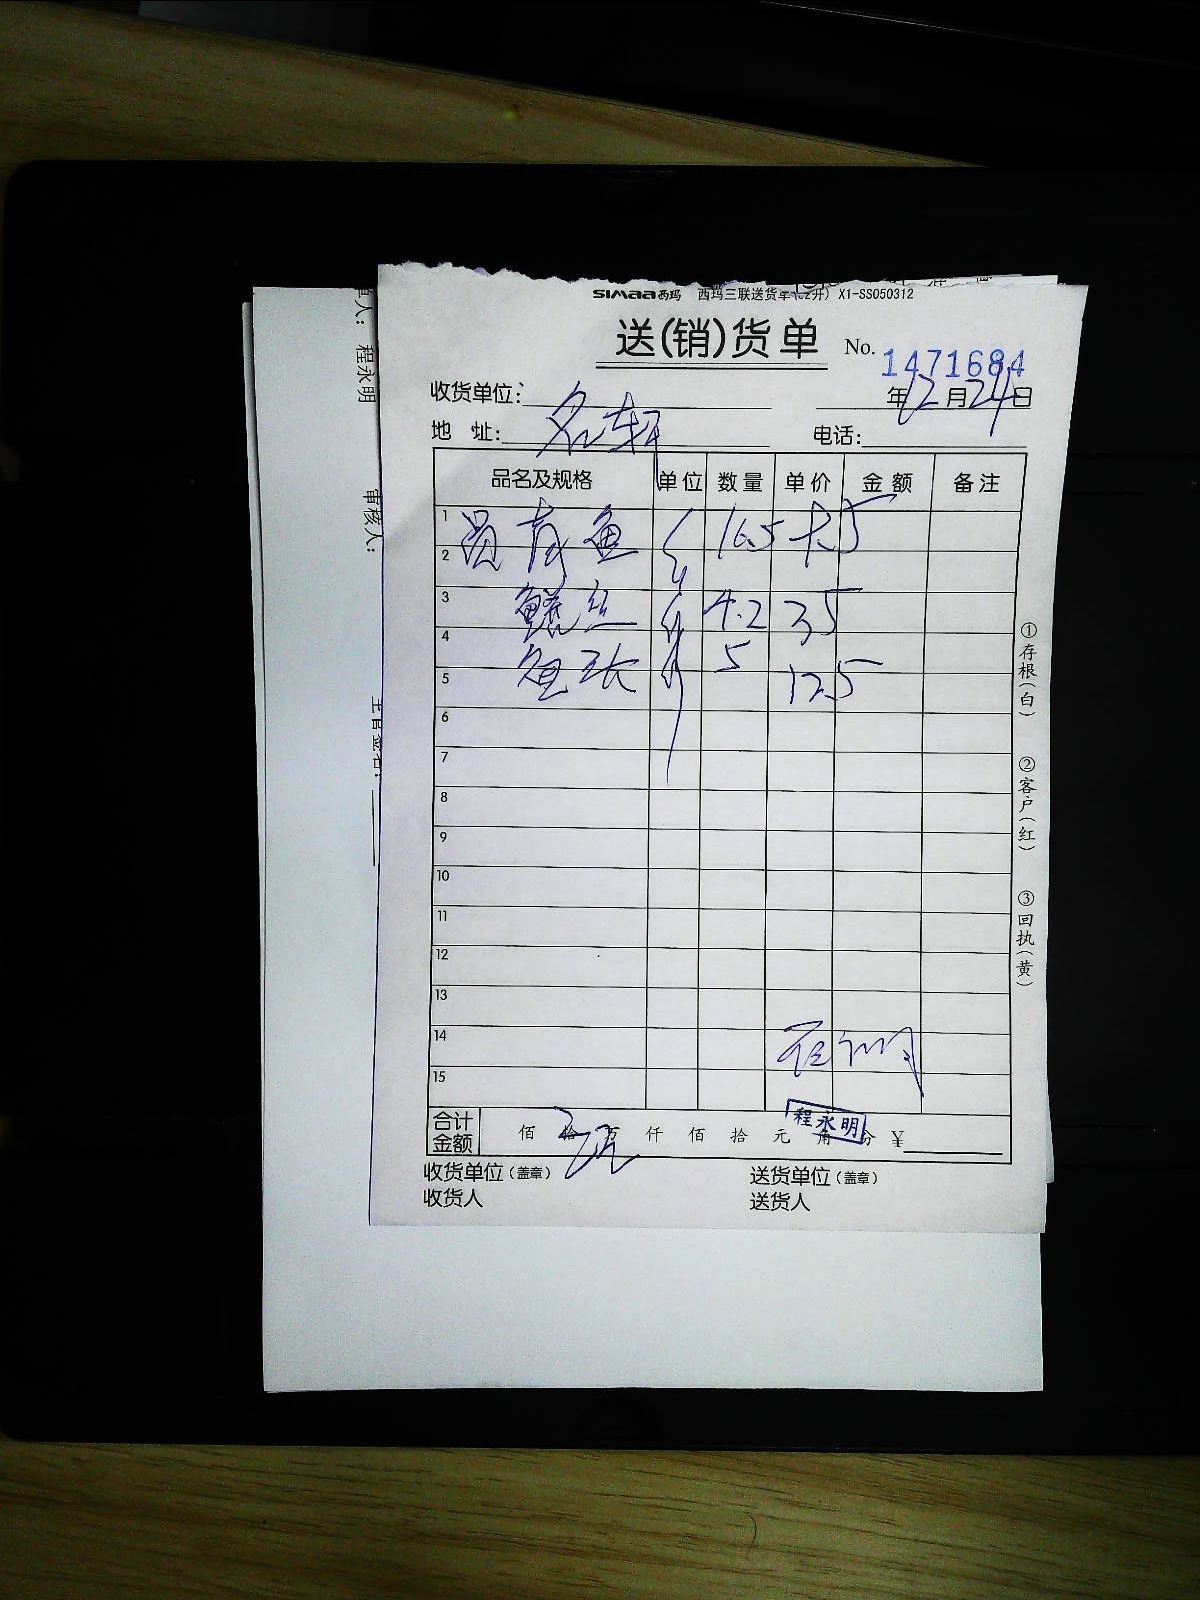 SIMAA西玛 西玛三联送货单 X1-SS050312
送(销)货单 No. 1471684
收货单位: 名轩
年12月24日
地 址: 电话:
品名及规格 单位 数量 单价 金额 备注
1 鱼 斤 16.5
2
3 鳝丝 斤 4.2 35
4 鱼 斤 5 12.5
5
6
7
8
9
10
11
12
13
14
15
合计金额 佰 拾 万 仟 佰 拾 元 角 分 ¥
程永明
收货单位(盖章) 送货单位(盖章)
收货人 送货人
①存根(白)
②客户(红)
③回执(黄)
人: 程永明
审核人:
主管签名: